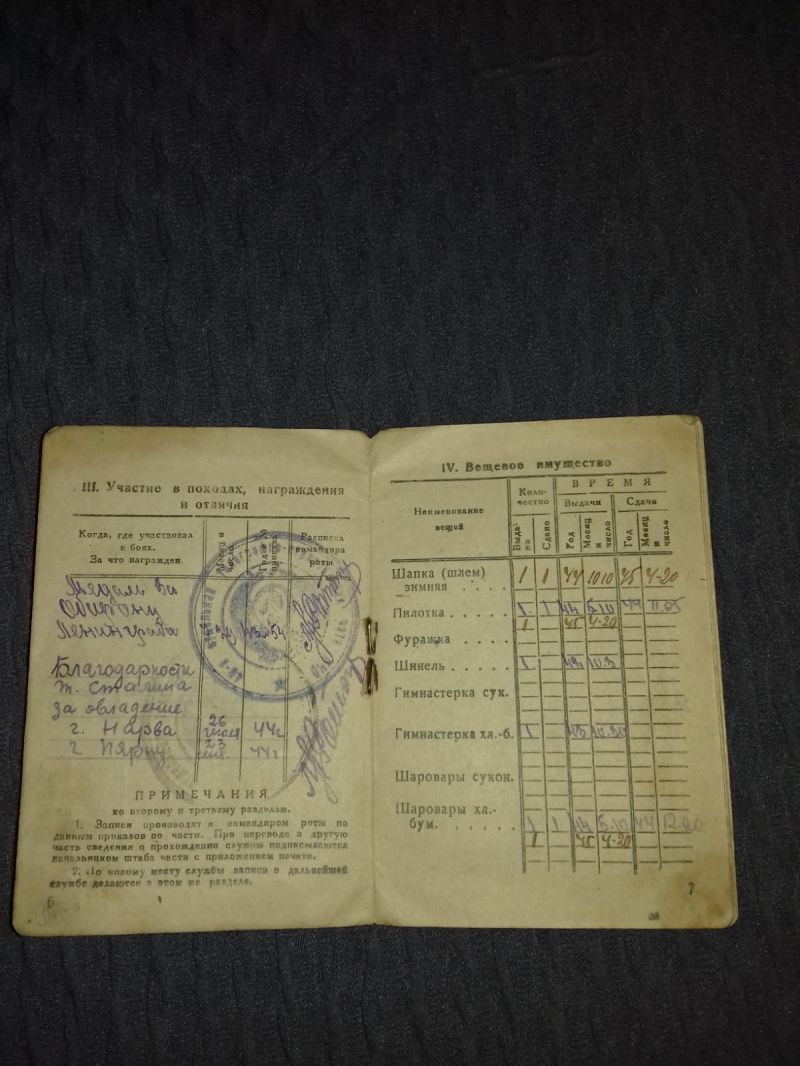 III. Участие в походах, награждения
и отличия
Когда, где участвовал
в боях.
За что награжден
Месяц и
число
Расписка
командира
роты
Медаль За
Оборону
Ленинграда
Благодарности
т. Сталина
за овладение
г. Нарва 26 июля 44 г
г. Пярну 23 сент. 44 г
ПРИМЕЧАНИЯ
ко второму и третьему разделам.
1. Записи производятся командиром роты по
данным приказов по части. При переводе в другую
часть сведения о прохождении службы подписываются
начальником штаба части с приложением печати.
2. По новому месту службы записи о дальнейшей
службе делаются в этом же разделе.
6
IV. Вещевое имущество
Наименование
вещей
Коли-
чество
ВРЕМЯ
Выдачи
Сдачи
Выда-
но
Сдано
Год
Месяц
и
число
Год
Месяц
и
число
Шапка (шлем)
зимняя . . . . 1 1 44 10 10 45 4-20
Пилотка . . . . . 1 1 44 5.10 44 11.05
1 45 4-20
Фуражка . . . .
Шинель . . . . . 1 10.3
Гимнастерка сук.
Гимнастерка хл.-б. 1
Шаровары сукон.
Шаровары хл.-
бум. . . . . . . 1 1 44 5.10 44 12.20
1 45 4-20
7